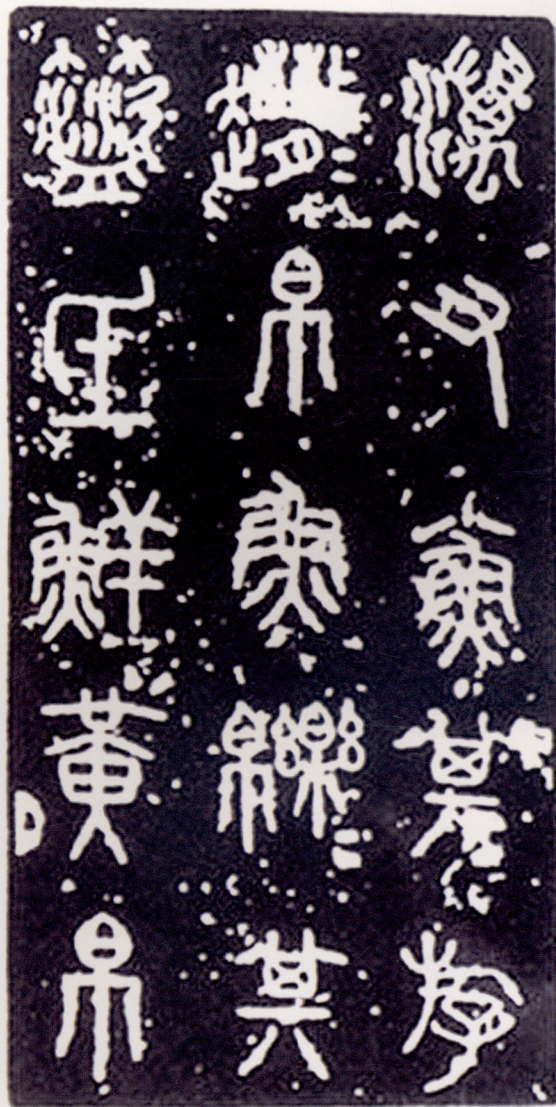 澫又小魚其斿
帛魚其
氐鮮黃帛